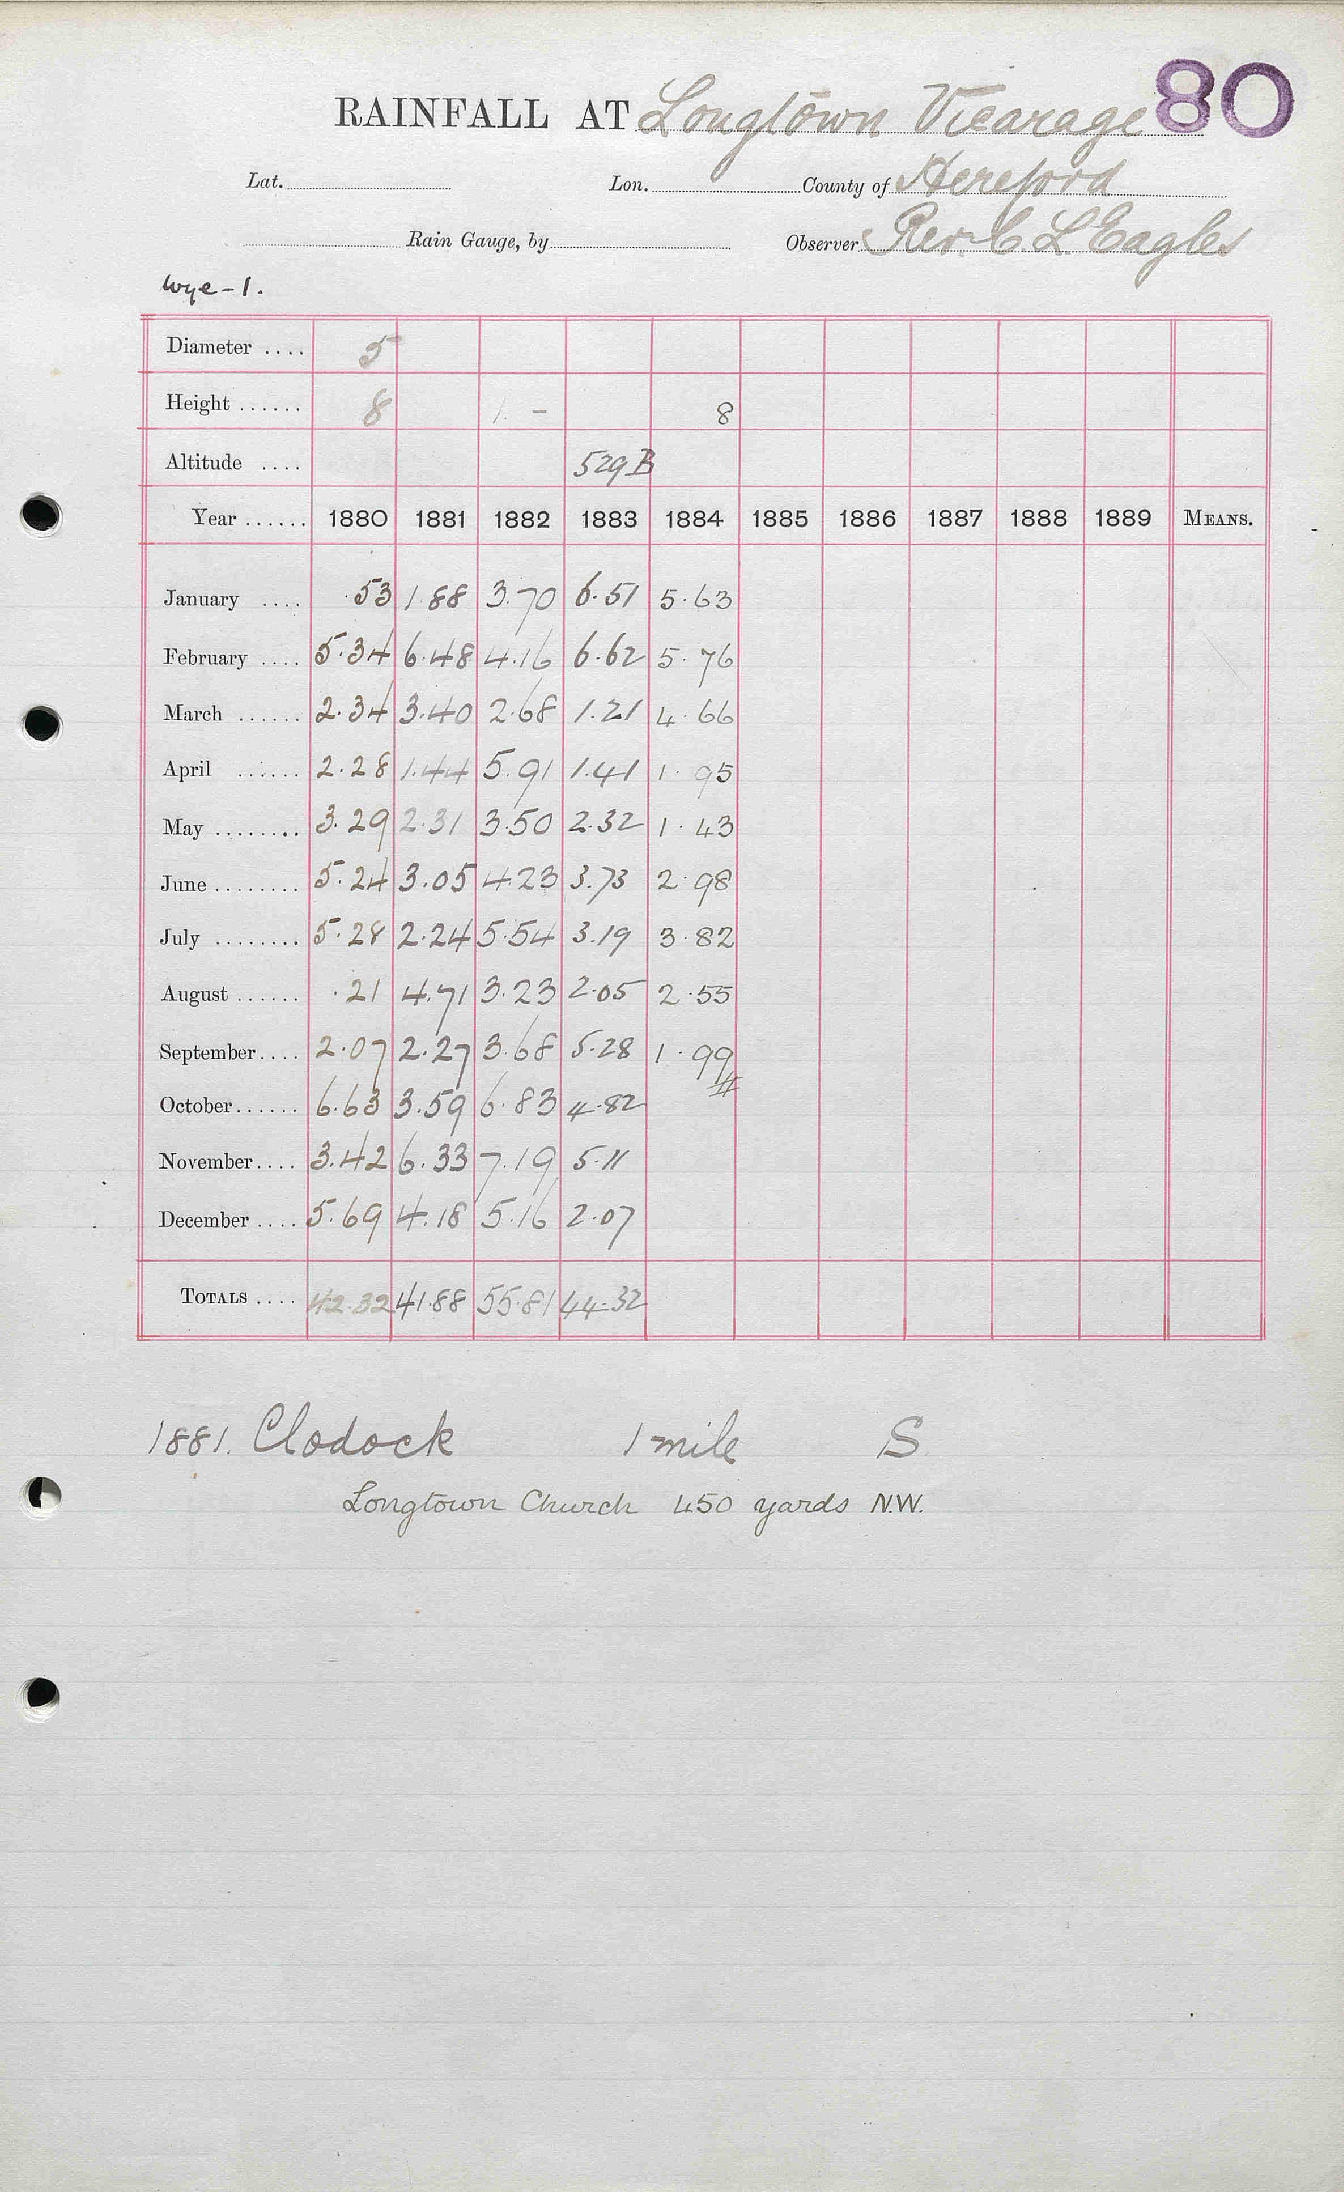 RAINFALL AT Longtown Vicarage 80
Lat. Lon. County of Hereford
Rain Gauge, by Observer Rev. C. L. Eagles
Wye-1.
Diameter .... 5
Height ...... 8 1. - 8
Altitude .... 529 B
Year ...... 1880 1881 1882 1883 1884 1885 1886 1887 1888 1889 MEANS.
January .... .53 1.88 3.70 6.51 5.63
February .... 5.34 6.48 4.16 6.62 5.76
March ...... 2.34 3.40 2.68 1.21 4.66
April ...... 2.28 1.44 5.91 1.41 1.95
May ........ 3.29 2.31 3.50 2.32 1.43
June ........ 5.24 3.05 4.23 3.73 2.98
July ........ 5.28 2.24 5.54 3.19 3.82
August ...... .21 4.71 3.23 2.05 2.55
September.... 2.07 2.27 3.68 5.28 1.99
October...... 6.63 3.59 6.83 4.82
November.... 3.42 6.33 7.19 5.11
December .... 5.69 4.18 5.16 2.07
TOTALS .... 42.32 41.88 55.81 44.32
1881. Clodock 1 mile S
Longtown Church 450 yards N.W.